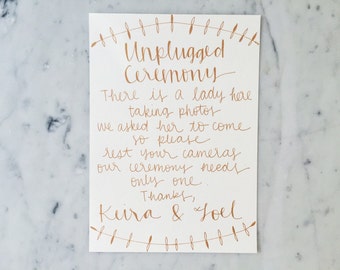 Unplugged
Ceremony
There is a lady here
taking photos
we asked her to come
so please
rest your cameras
our ceremony needs
only one.
Thanks,
Keira & Joel